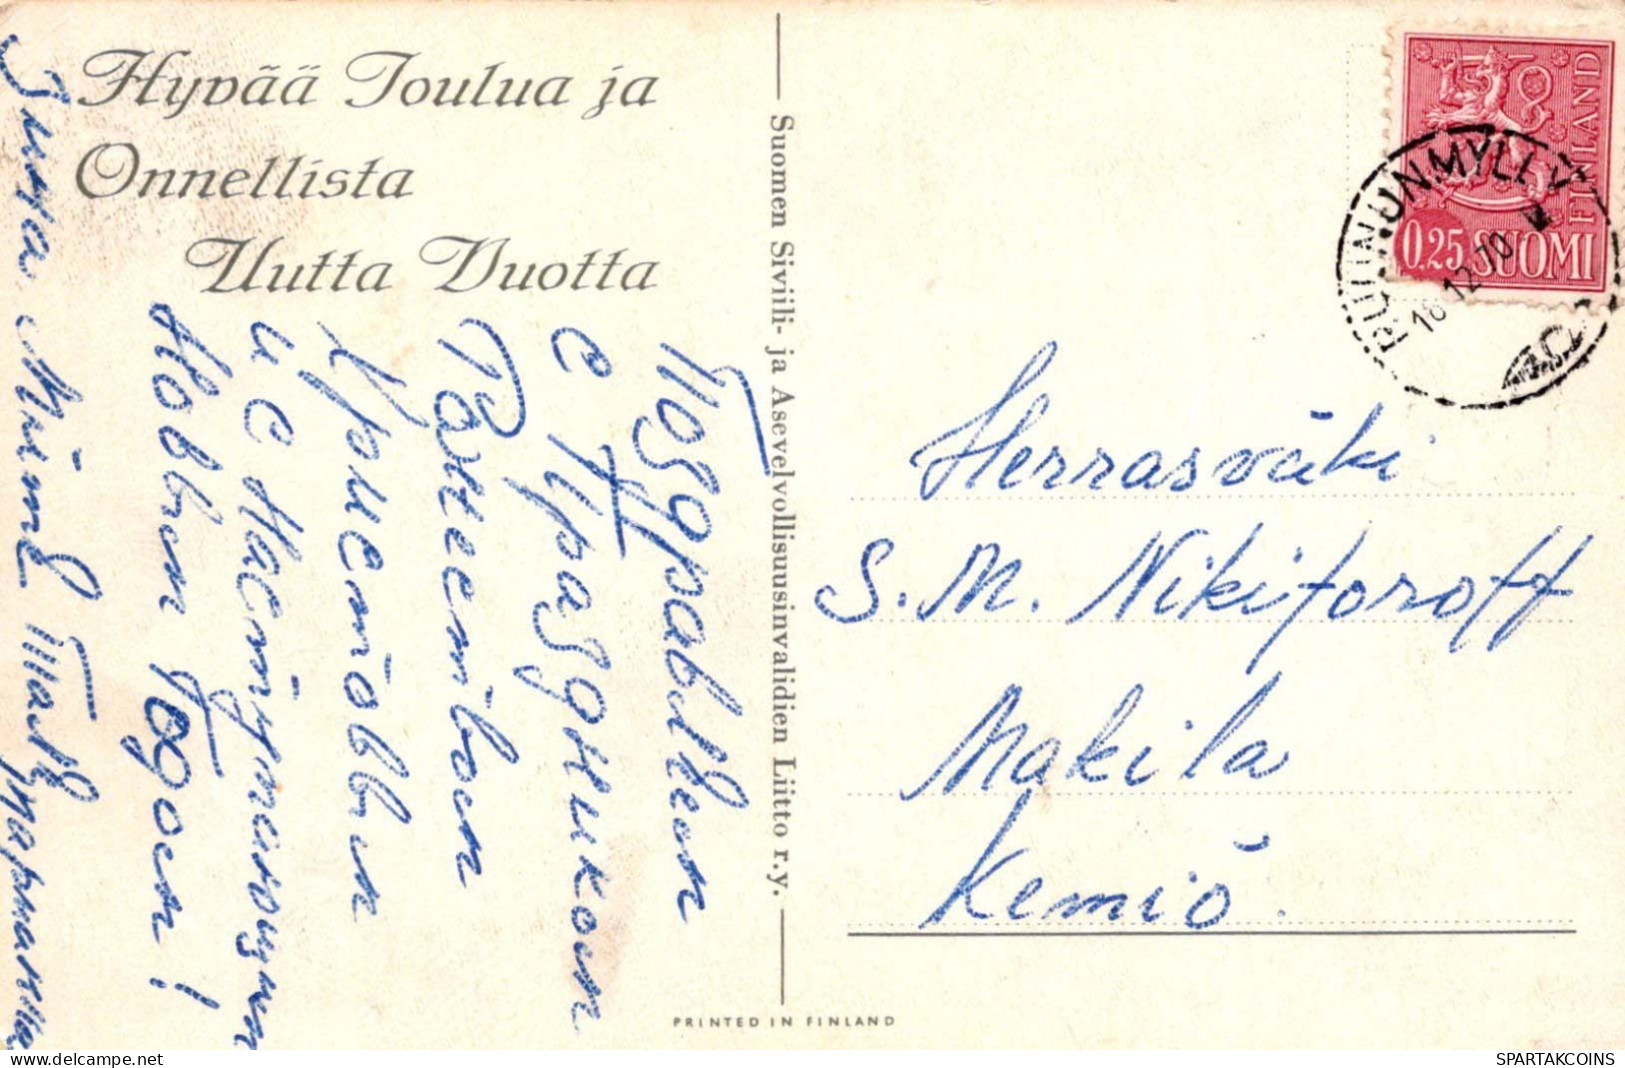 Hyvää Joulua ja
Onnellista
Uutta Vuotta
Поздравляем
с Праздником
Рождеством
Христовым
и с Наступающим
Новым Годом!
Suomen Siviili- ja Asevelvollisuusinvalidien Liitto r.y.
PRINTED IN FINLAND
FINLAND
0.25 SUOMI
RUUNUNMYLLY
12.70
Herrasväki
S. M. Nikiforoff
Makila
Kemiö.
SPARTAKCOINS
https://www.delcampe.net